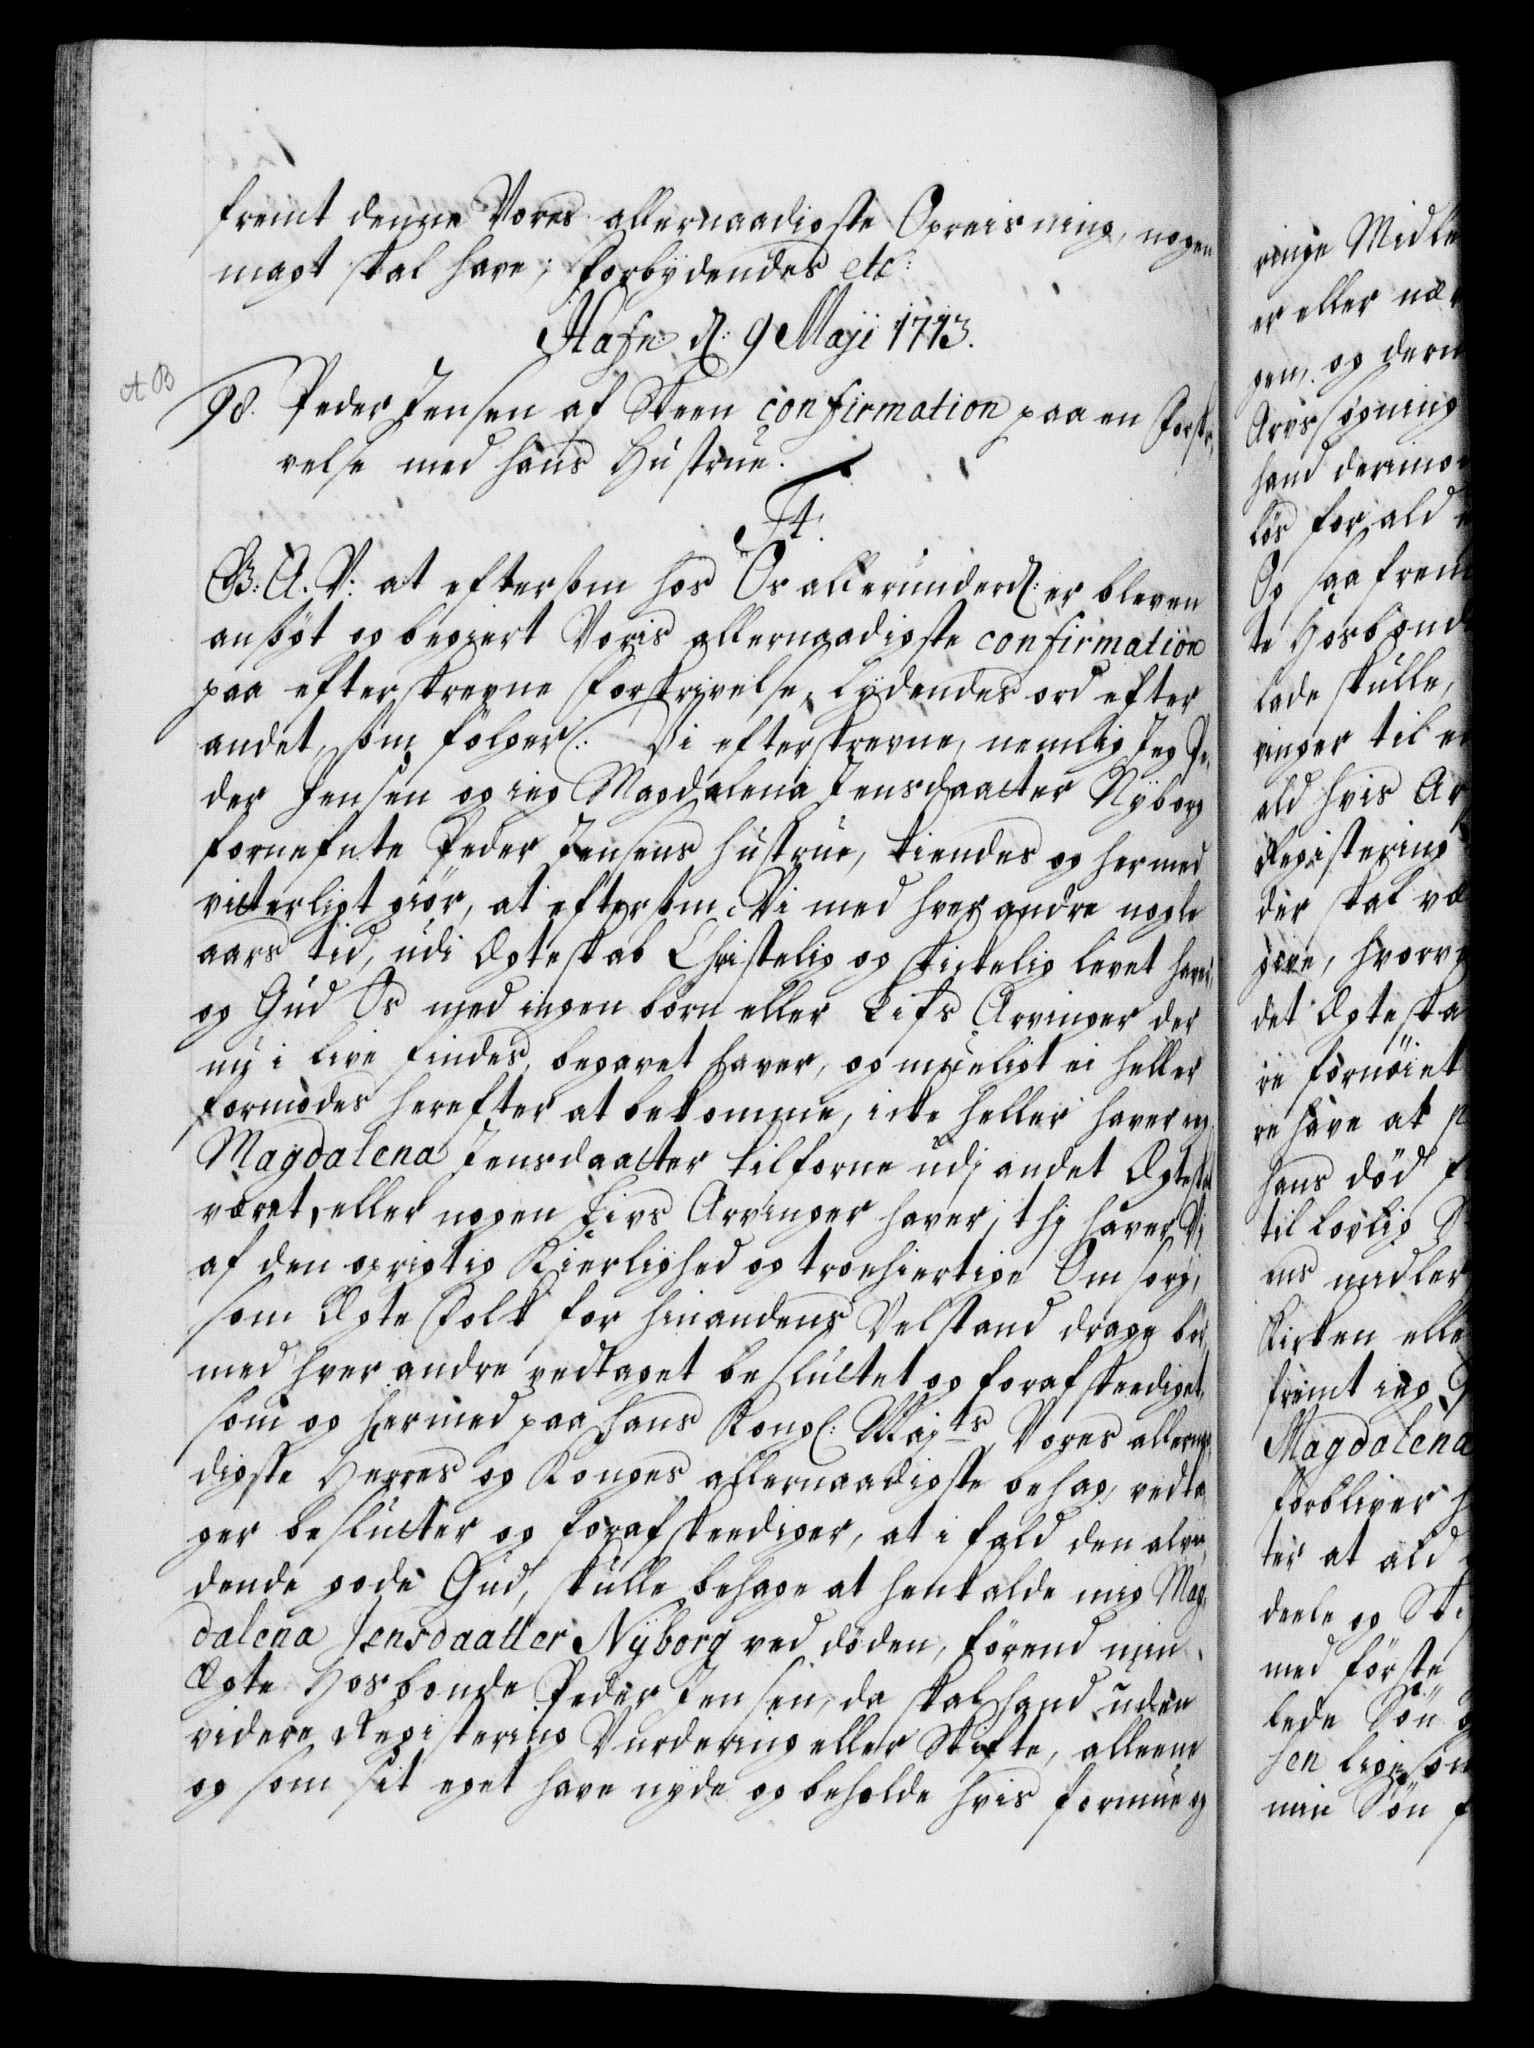 fremt denne Vores allernaadigste Opreisning, nogen
magt skal have; Forbydendes etc:
Hafn: d: 9 Maji 1713.
A B
98. Peder Jensen af Skeen confirmation paa en Forskr,
velse med hans Hustrue.
F4.
G: A: V: at eftersom hos Os allerunderd: er bleven
ansögt og begiert Voris allernaadigste confirmation
paa efterskrevne Forskrivelse, Lydendes ord efter
andet, som fölger: Vi efterskrevne, nemlig Jeg Pe,
der Jensen og ieg Magdalena Jensdaatter Nyborg
fornefnte Peder Jensens hustrue, kiendes og hermed
vitterligt giör, at eftersom Vi med hver andre nogle
aars tid, udi Ægteskab Christelig og skikkelig levet haver,
og Gud Os med ingen börn eller Lifs Arvinger der
nu i live findes, begavet haver, og mueligt ei heller
formodes herefter at bekomme, icke heller haver ieg
Magdalena Jensdaatter tilforne udi andet Ægteskab
været, eller nogen Livs Arvinger haver, thi haver Vi
af den oprigtig Kierlighed og troehiertige Omsorg,
som Ægte Folk for hinandens Velstand drage bör,
med hver andre vedtaget besluttet og forafskeediget,
som og hermed paa Hans Kongl: Majts Vores allernaa,
digste Herres og Konges allernaadigste behag, vedta
ger beslutter og forafskeediger, at i fald den alvi,
dende gode Gud, skulle behage at henkalde mig Mag,
dalena Jensdaatter Nyborg ved döden, förend min
Ægte Hosbonde Peder Jensen, da skal hand uden
videre Registering Vurdering eller Skifte, alleene
og som sit eget have nyde og beholde hvis formue og
ringe Midle
er eller næ
gen, og derm
Arvs sögning
hand derimo
lös for ald
Og saa frem
te Hosbond
lade skulle,
vinger til e
ald hvis Ar
Registering
der skal væ
give, hvorve
det Ægteska
re fornöiet
re have at
hans död f
til lovlig
ens midler
Kirken elle
fremt ieg
Magdalena
forbliver h
ter at ald
deele og Ski
med förste
lede Sön
sen ligesom
min Sön f